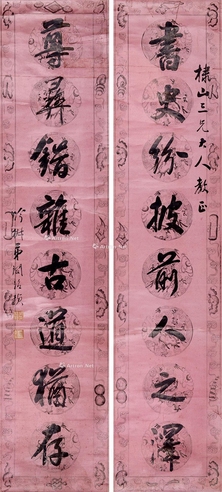 棣山三兄大人教正
書史紛披前人之澤
尊彝錯雜古道猶存